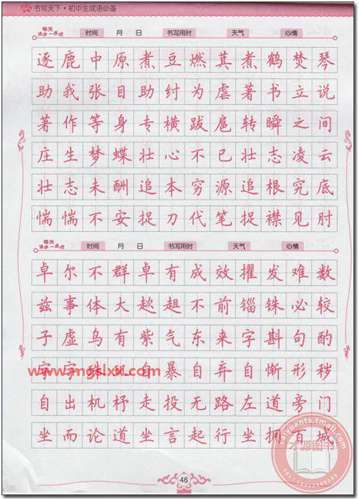 书写天下·初中生成语必备
每天进步一点点 时间 月 日 书写用时 天气 心情
逐鹿中原煮豆燃萁煮鹤焚琴
助我张目助纣为虐著书立说
著作等身专横跋扈转瞬之间
庄生梦蝶壮心不已壮志凌云
壮志未酬追本穷源追根究底
惴惴不安捉刀代笔捉襟见肘
每天进步一点点 时间 月 日 书写用时 天气 心情
卓尔不群卓有成效擢发难数
兹事体大趑趄不前锱铢必较
子虚乌有紫气东来字斟句酌
字字珠 自暴自弃自惭形秽
自出机杼走投无路左道旁门
坐而论道坐言起行坐拥百城
46